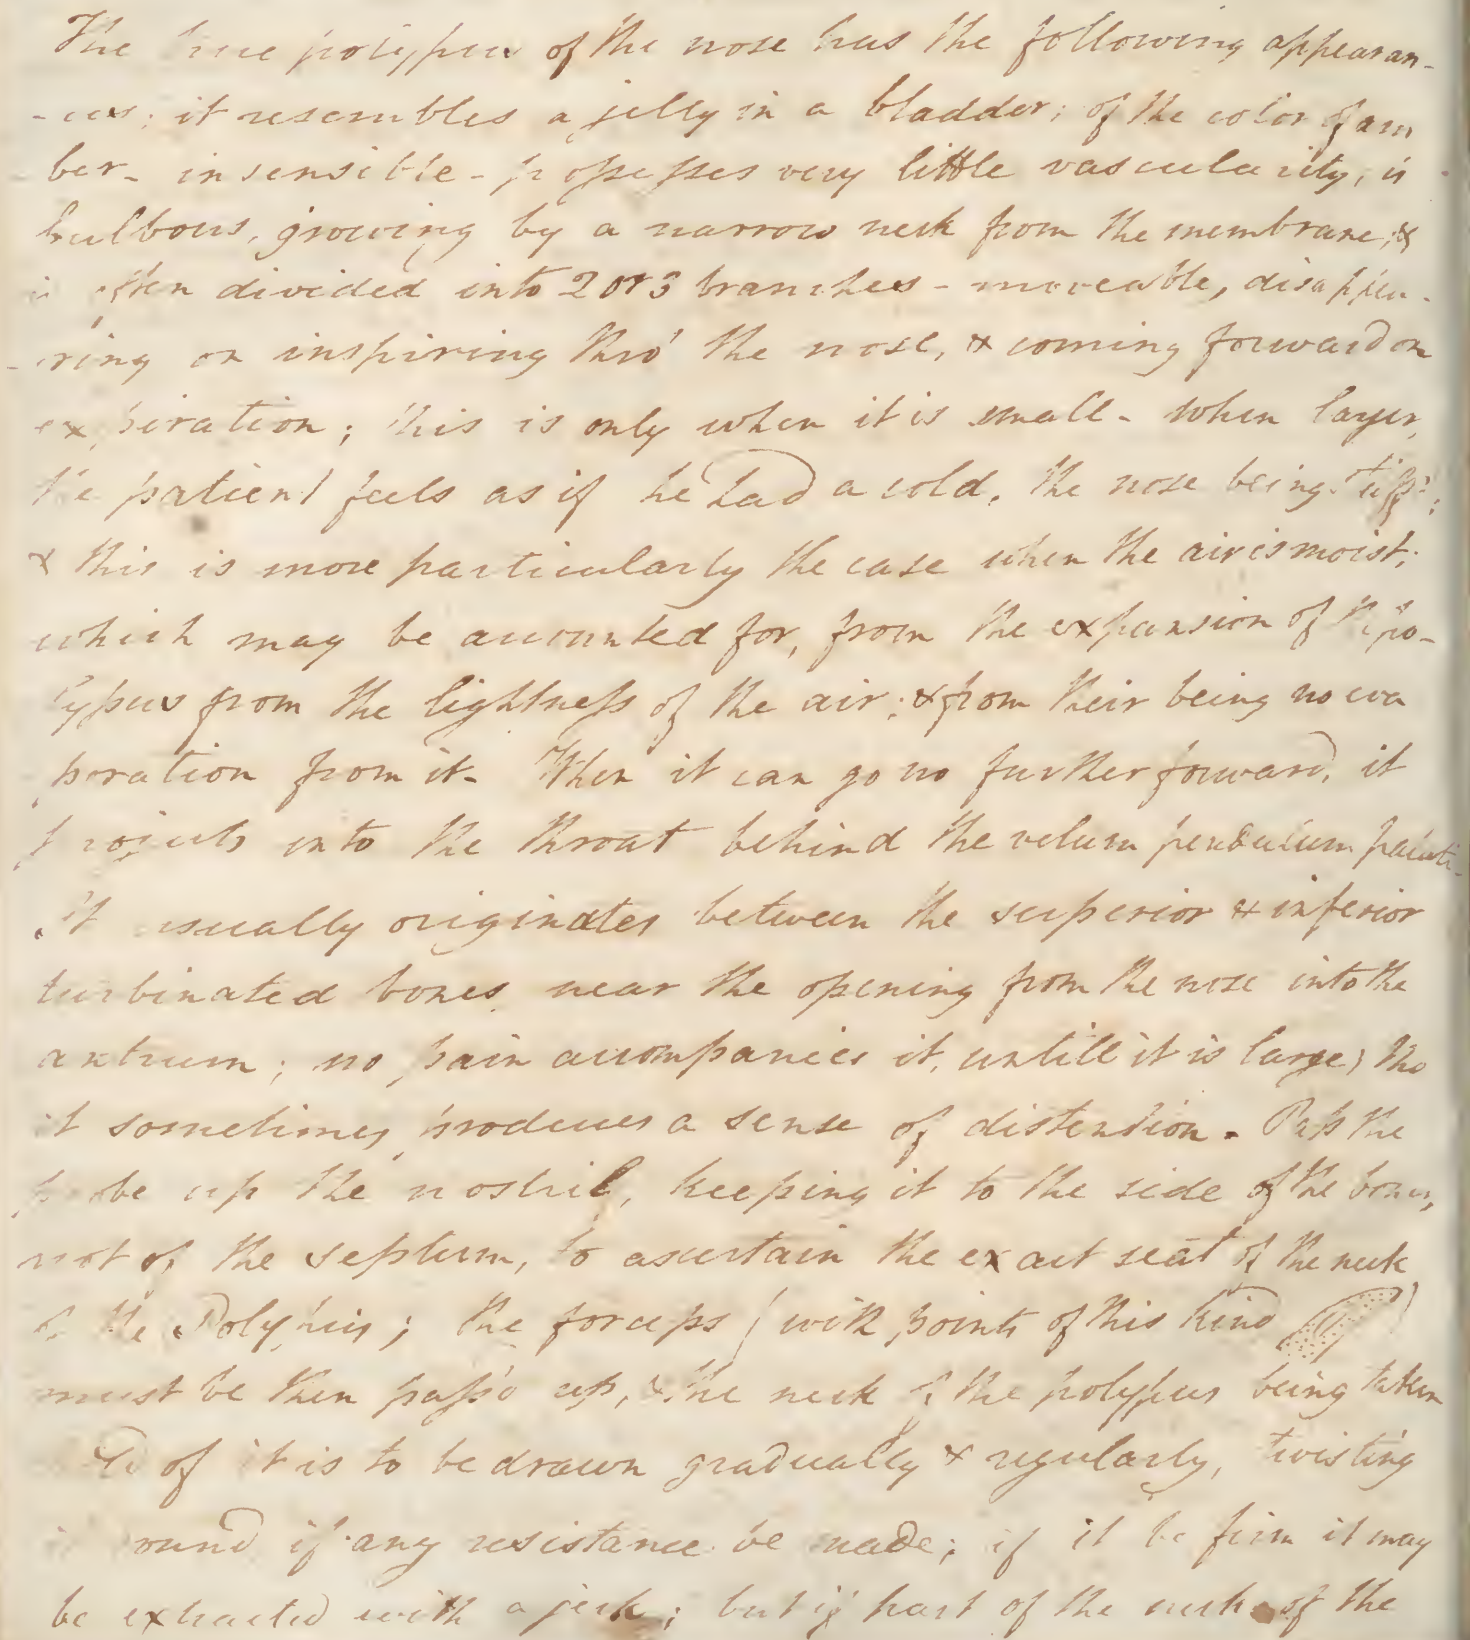 The true polypus of the nose has the following appearan-
-ces; it resembles a jelly in a bladder; of the color of am
ber- insensible - possesses very little vascularity, is
bulbous, growing by a narrow neck from the membrane; &
is often divided into 2 or 3 branches - moveable, disappea-
-ring on inspiring thro' the nose, & coming forward on
expiration; this is only when it is small- when larger,
the patient feels as if he had a cold, the nose being
& this is more particularly the case when the air is moist;
which may be accounted for, from the expansion of the po-
lypus from the lightness of the air; & from their being no eva
poration from it- When it can go no further forward, it
projects into the throat behind the velum pendulum palati-
it usually originates between the superior & inferior
turbinated bones, near the opening from the nose into the
antrum; no pain accompanies it, untill it is large; tho
it sometimes produces a sense of distention. Pass the
probe up the nostril, keeping it to the side of the bones,
not of the septum, to ascertain the exact seat of the neck
of the Polypus; the forceps (with points of this kind )
must be then pass'd up, & the neck of the polypus being taken
of it is to be drawn gradually & regularly, twisting
round if any resistance be made; if it be firm it may
be extracted with a jerk; but if part of the neck of the